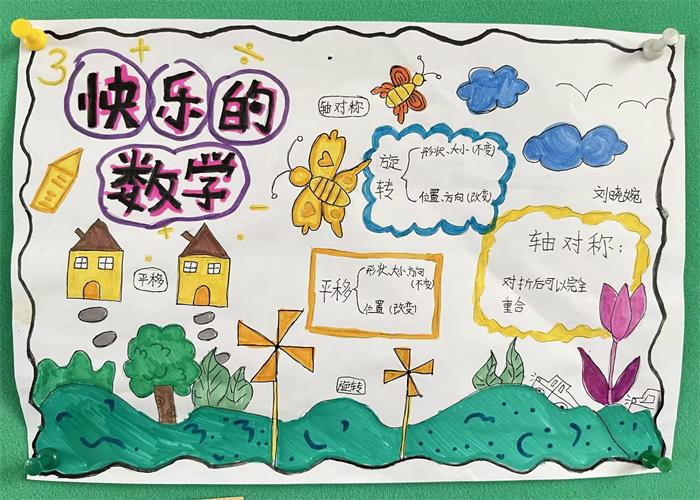 3
快乐的
数学
轴对称
旋转
形状、大小(不变)
位置、方向(改变)
刘晓婉
轴对称:
对折后可以完全
重合
平移
平移
形状、大小、方向
(不变)
位置(改变)
旋转